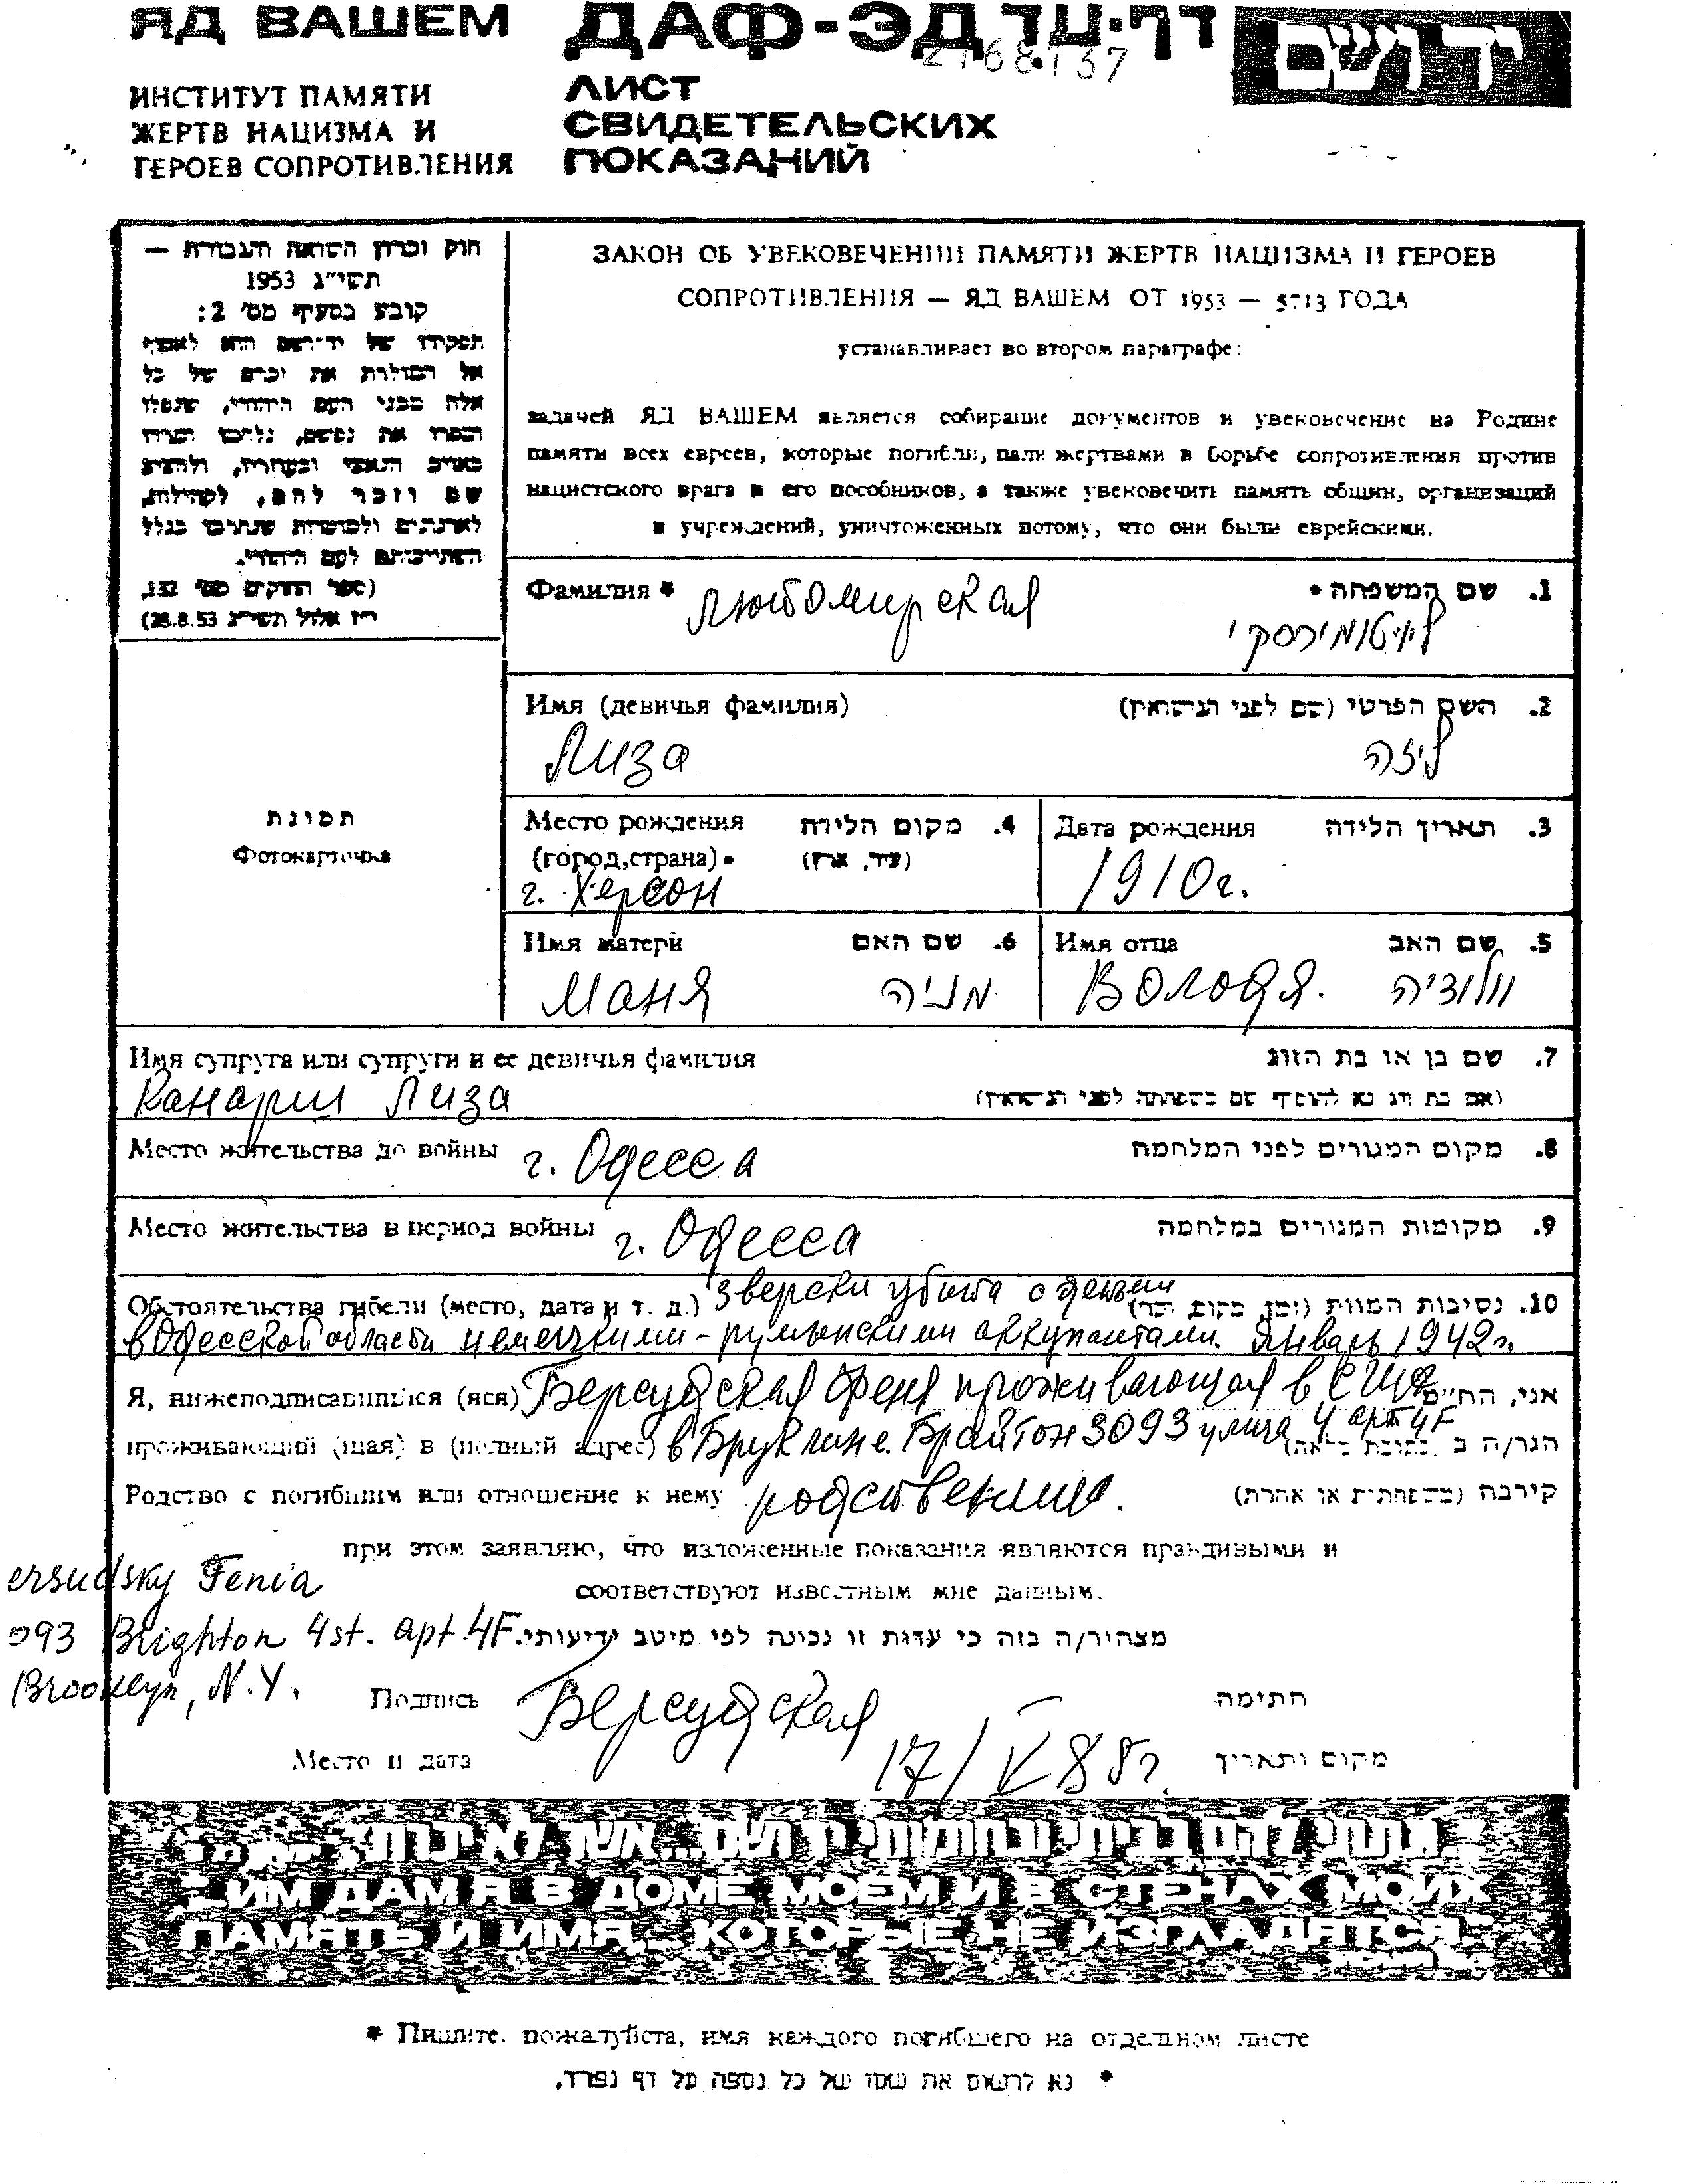 ЯД ВАШЕМ
ДАФ-ЭД דף-עד
2168137
יד ושם
ИНСТИТУТ ПАМЯТИ
ЖЕРТВ НАЦИЗМА И
ГЕРОЕВ СОПРОТИВЛЕНИЯ
ЛИСТ
СВИДЕТЕЛЬСКИХ
ПОКАЗАНИЙ
חוק זכרון השואה והגבורה —
תשי"ג 1953
קובע בסעיף מס' 2:
תפקידו של יד-ושם הוא לאסוף
אל המולדת את זכרם של כל
אלה מבני העם היהודי, שנפלו
ומסרו את נפשם, נלחמו ומרדו
באויב הנאצי ובעוזריו, ולהציב
שם וזכר להם, לקהילות,
לארגונים ולמוסדות שנחרבו בגלל
השתייכותם לעם היהודי.
(ספר החוקים מס' 132,
י"ז אלול תשי"ג 28.8.53)
ЗАКОН ОБ УВЕКОВЕЧЕНИИ ПАМЯТИ ЖЕРТВ НАЦИЗМА И ГЕРОЕВ
СОПРОТИВЛЕНИЯ — ЯД ВАШЕМ ОТ 1953 — 5713 ГОДА
устанавливает во втором параграфе:
задачей ЯД ВАШЕМ является собирание документов и увековечение на Родине
памяти всех евреев, которые погибли, пали жертвами в борьбе сопротивления против
нацистского врага и его пособников, а также увековечить память общин, организаций
и учреждений, уничтоженных потому, что они были еврейскими.
Фамилия * Любомирская 1. שם המשפחה *
Имя (девичья фамилия) 2. השם הפרטי (שם לפני הנישואין)
Лиза ליזה
תמונת
Фотокарточка
Место рождения 4. מקום הלידה
(город,страна) * (עיר, ארץ)
г. Херсон
Дата рождения 3. תאריך הלידה
1910г.
Имя матери 6. שם האם
Маня מניה
Имя отца 5. שם האב
Володя. וולודיה
Имя супруга или супруги и ее девичья фамилия 7. שם בן או בת הזוג
Канарии Лиза (אם בת זוג נא להוסיף שם משפחתה לפני הנישואין)
Место жительства до войны г. Одесса 8. מקום המגורים לפני המלחמה
Место жительства в период войны г. Одесса 9. מקומות המגורים במלחמה
Обстоятельства гибели (место, дата и т. д.) зверски убита с детьми 10. נסיבות המוות (זמן, מקום, וכו')
в Одесской области немецкими-румынскими оккупантами. Январь 1942г.
Я, нижеподписавшийся (яся) Берсудская Феня проживающая в США אני, הח"מ
проживающий (щая) в (полный адрес) в Бруклине. Брайтон 3093 улица 4 арт 4F הגר/ה ב (כתובת מלאה)
Родство с погибшим или отношение к нему родственница. קירבה (משפחתית או אחרת)
при этом заявляю, что изложенные показания являются правдивыми и
соответствуют известным мне данным.
ersudsky Fenia
093 Brighton 4st. apt.4F.
Brooklyn, N.Y.
מצהיר/ה בזה כי עדות זו נכונה לפי מיטב ידיעותי.
Подпись Берсудская חתימה
Место и дата 17/V 88г. מקום ותאריך
"...ונתתי להם בביתי ובחומותי יד ושם...אשר לא יכרת"
"ИМ ДАМ Я В ДОМЕ МОЕМ И В СТЕНАХ МОИХ
ПАМЯТЬ И ИМЯ, КОТОРЫЕ НЕ ИЗГЛАДЯТСЯ"
* Пишите. пожалуйста, имя каждого погибшего на отдельном листе
* נא לרשום את שמו של כל נספה על דף נפרד.